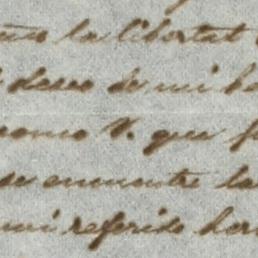 la libertad
deseo de mi
como V. que
se encuentre la
mi referido her